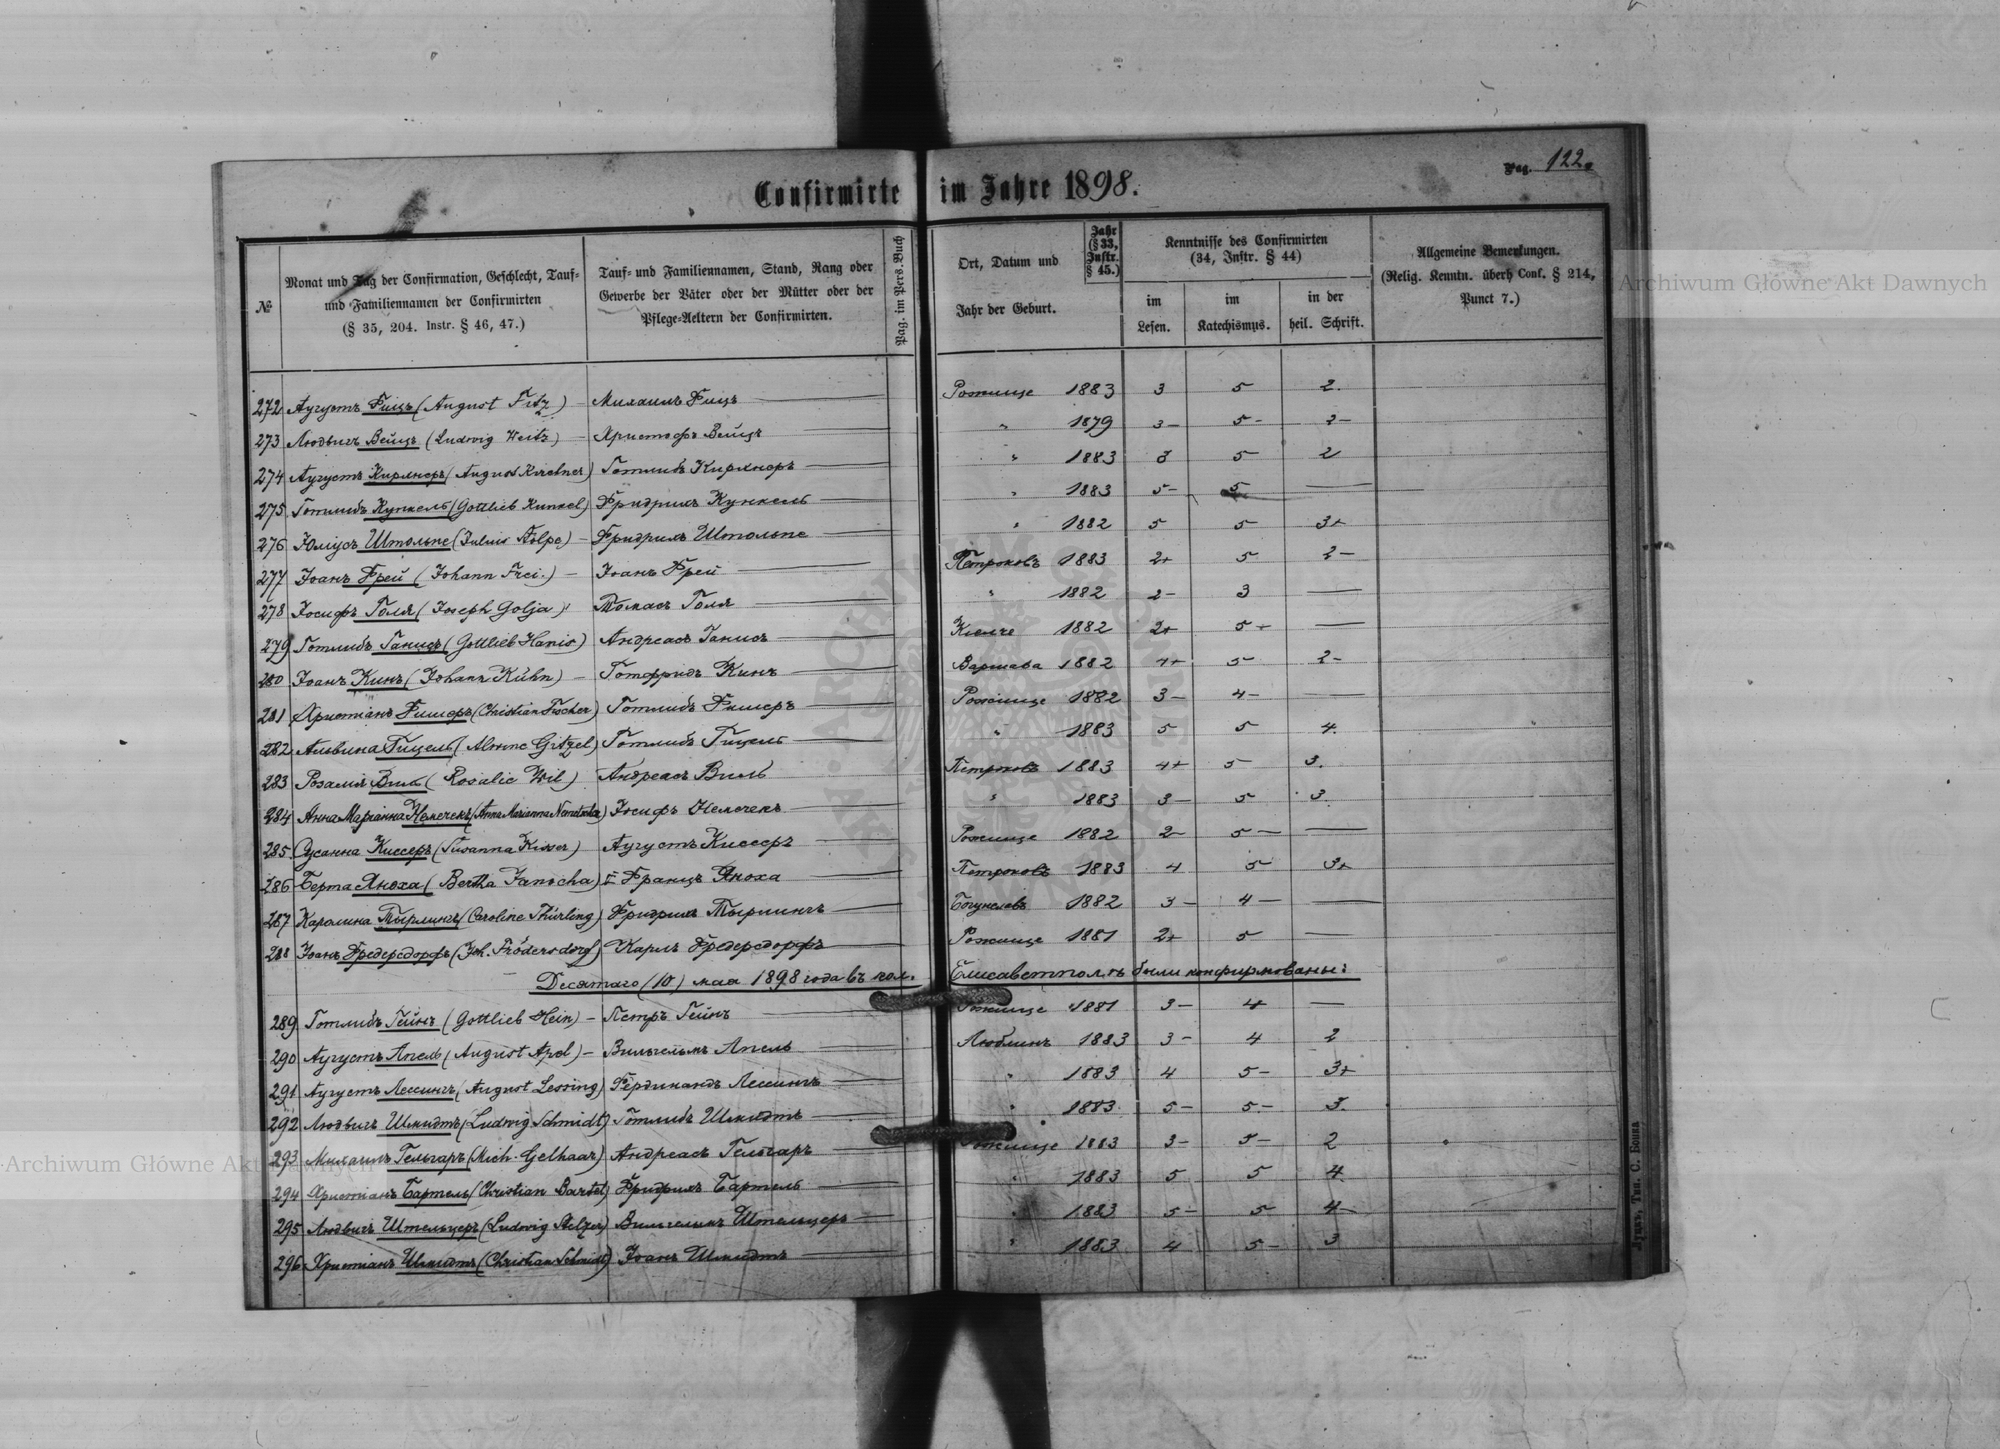 Pag. 122.
Confirmirte im Jahre 1898.
№
Monat und Tag der Confirmation, Geschlecht, Tauf-
und Familiennamen der Confirmirten
(§ 35, 204. Instr. § 46, 47.)
Tauf- und Familiennamen, Stand, Rang oder
Gewerbe der Väter oder der Mütter oder der
Pflege-Aeltern der Confirmirten.
Pag. im Pers. Buch
Ort, Datum und
Jahr der Geburt.
Jahr
(§ 33,
Instr.
§ 45.)
Kenntnisse des Confirmirten
(34, Instr. § 44)
im
Lesen.
im
Katechismus.
in der
heil. Schrift.
Allgemeine Bemerkungen.
(Relig. Kenntn. überh Conf. § 214,
Punct 7.)
272 Аугустъ Фицъ (August Fitz) — Михаилъ Фицъ — Рожище 1883 3 5 2.
273 Людвигъ Вейцъ (Ludwig Weitz) — Христофъ Вейцъ — " 1879 3— 5— 2—
274 Аугустъ Кирхнеръ (August Kirchner) Готлибъ Кирхнеръ — " 1883 3 5 2
275 Готлибъ Кункель (Gottlieb Kunkel) Фридрихъ Кункель — " 1883 5— 5 —
276 Юліусъ Штольпе (Julius Stolpe) — Фридрихъ Штольпе — " 1882 5 5 3+
277 Іоанъ Фрей (Johann Frei.) — Іоанъ Фрей — Петроковъ 1883 2+ 5 2—
278 Іосифъ Голя (Joseph Golja) Томасъ Голя — " 1882 2— 3 —
279 Готлибъ Ганисъ (Gottlieb Hanis) Андреасъ Ганисъ — Кіелче 1882 2+ 5+ —
280 Іоанъ Кинъ (Johann Kühn) — Готфридъ Кинъ — Варшава 1882 4+ 5— 2—
281 Христіанъ Фишеръ (Christian Fischer) Готлибъ Фишеръ — Рожище 1882 3— 4— —
282 Альвина Гицель (Alwine Gitzel) Готлибъ Гицель — " 1883 5 5 4.
283 Розалія Виль (Rosalie Wil) Андреасъ Виль Петроковъ 1883 4+ 5— 3.
284 Анна Маріанна Немечекъ (Anna Marianna) Іосифъ Немечекъ — " 1883 3— 5 3
285 Сусанна Киссеръ (Susanna Kisser) Аугустъ Киссеръ — Рожище 1882 2— 5— —
286 Берта Яноха (Bertha Janocha) Францъ Яноха Петроковъ 1883 4 5 3+
287 Каролина Тырлингъ (Caroline Thürling) Фридрихъ Тырлингъ — 1882 3— 4— —
288 Іоанъ Фредерсдорфъ (Joh. Frödersdorf) Карлъ Фредерсдорфъ Рожище 1881 2+ 5 —
Десятаго (10) мая 1898 года въ кол. Елисаветполѣ были конфирмованы:
289 Готлибъ Гейнъ (Gottlieb Hein) — Петръ Гейнъ — Рожище 1881 3— 4 —
290 Аугустъ Апель (August Apel) — Вильгельмъ Апель — Люблинъ 1883 3— 4 2
291 Аугустъ Лессингъ (August Lessing) Фердинандъ Лессингъ — " 1883 4 5— 3+
292 Людвигъ Шмидтъ (Ludwig Schmidt) Готлибъ Шмидтъ — " 1883 5— 5— 3.
293 Михаилъ Гельгаръ (Mich. Gelhaar) Андреасъ Гельгаръ — Рожище 1883 3— 5— 2
294 Христіанъ Бартель (Christian Bartel) Фридрихъ Бартель — " 1883 5 5 4
295 Людвигъ Штельцеръ (Ludwig Stelzer) Вильгельмъ Штельцеръ — " 1883 5— 5 4—
296 Христіанъ Шмидтъ (Christian Schmidt) Іоанъ Шмидтъ — " 1883 4 5— 3
Луцкъ, Тип. С. Бонка
Archiwum Główne Akt Dawnych
Archiwum Główne Akt